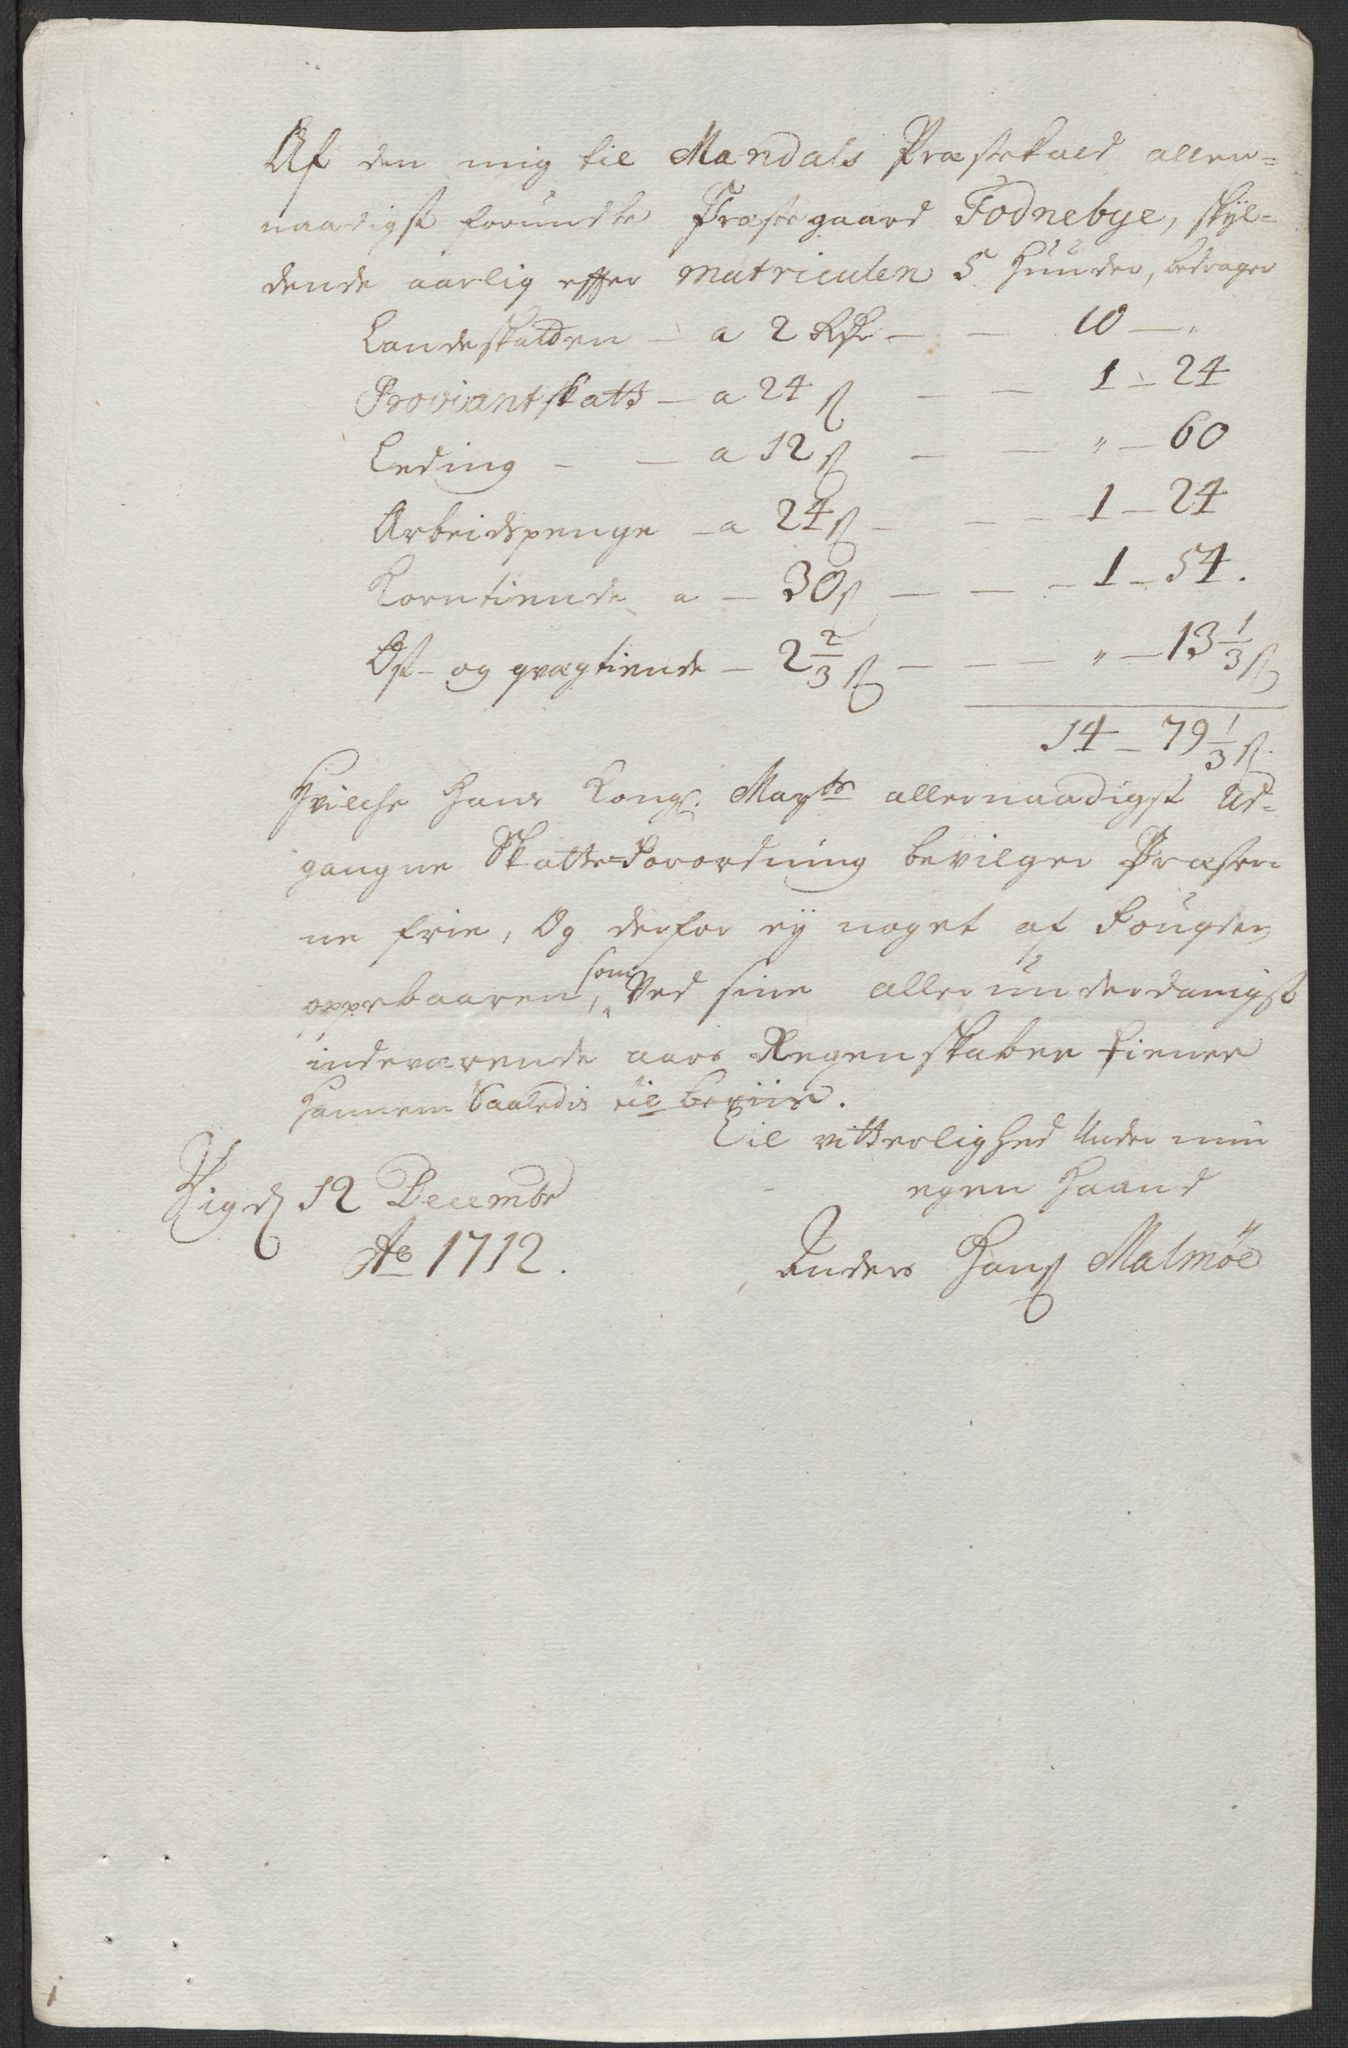 Af den mig til Mandals Præstekald aller-
naadigst forundte Præstegaard Fodnebye, skyl-
dende aarlig effter Matriculen 5 Hunder, bedrager
Landeskatten - a 2 Rdr - - 10 - "
Proviantskatt - a 24 ß - - 1 - 24
Leding - - a 12 ß - - " - 60
Arbeidspenge - a 24 ß - - - 1 - 24
Korntiende a - 30 ß - - - 1 - 54.
Ost- og qvægtiende - 2 2/3 ß - - - " - 13 1/3 ß
14 - 79 1/3 ß.
Hvilche Hans Kongl. Mayts allernaadigst Ud-
gangne Skatte-Forordning bevilger Præster-
ne frie, Og derfor ej noget af Fougden
oppebaaren, som Ved sine allerunderdanigst
indeværende aars Regenskaber tiener
Hannem Saaledis til beviis.
Til vitterlighed Under min
egen Haand
Vig d 12 Decembr
Ao 1712.
Anders Hanß Malmöe
i